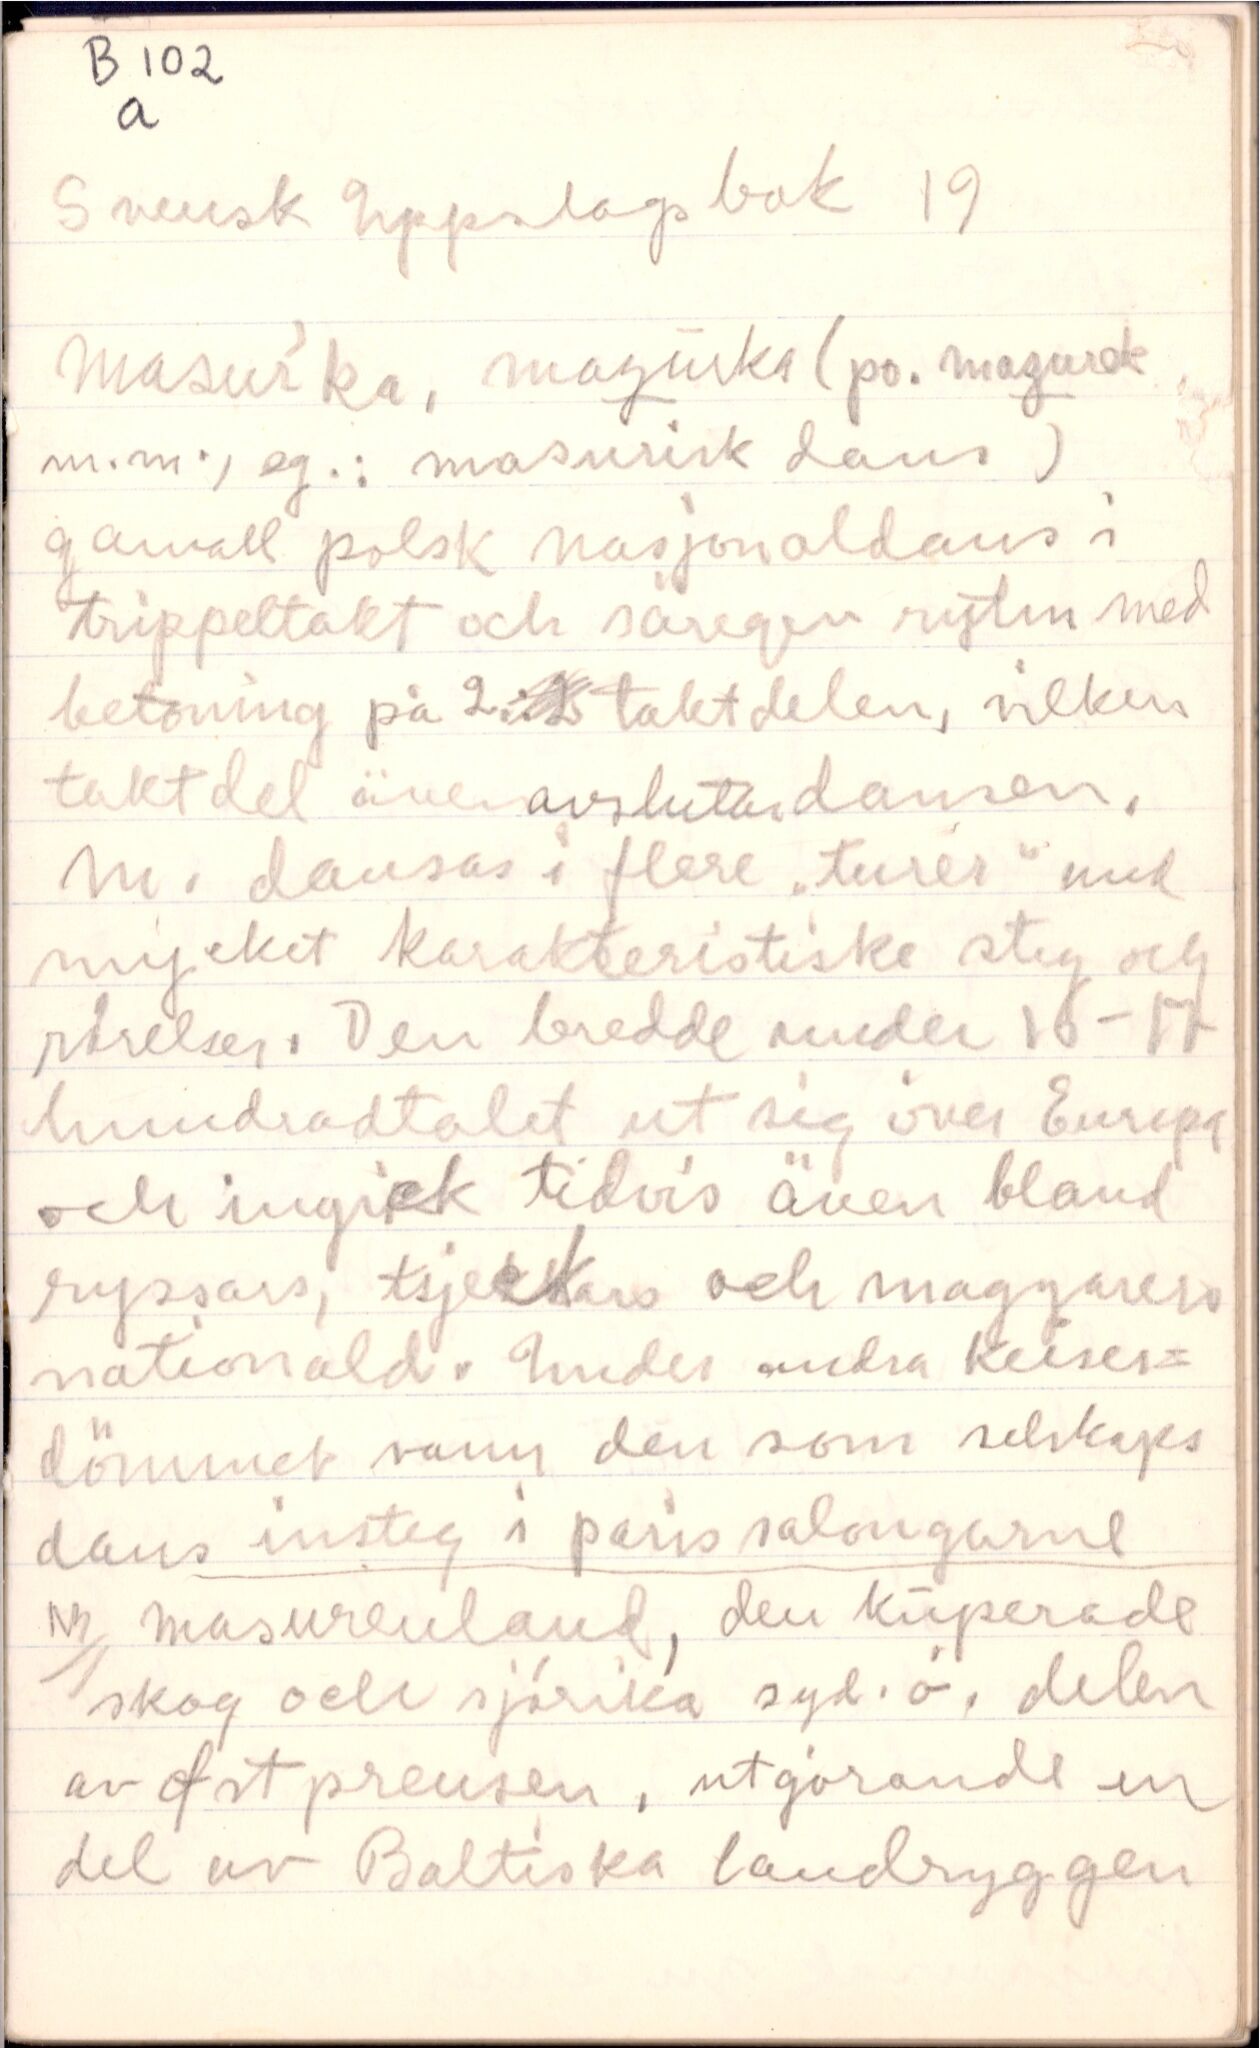 B 102
a
Svensk Uppslagsbok 19
Masur'ka, mazurka (po. mazurek
m.m., eg.: masurisk dans)
gamall polsk nasjonaldans i
trippeltakt och säregen rytm med
betoning på 2. taktdelen, vilken
taktdel även avslutar dansen.
M. dansas i flere „turer" med
myeket karakteristiske steg och
rörelser. Den bredde under 16-17
hundradtalet ut sig över Europa
och ingick tidvis även bland
ryssars, tsjeckars och maggarers
nationald. Under andra keiser=
dömmet vann den som selskaps
dans insteg i paris salongarne
masurenland, den kuperade
skog och sjörika syd. ö. delen
av Østpreusen, utgörande en
del av Baltiska landryggen